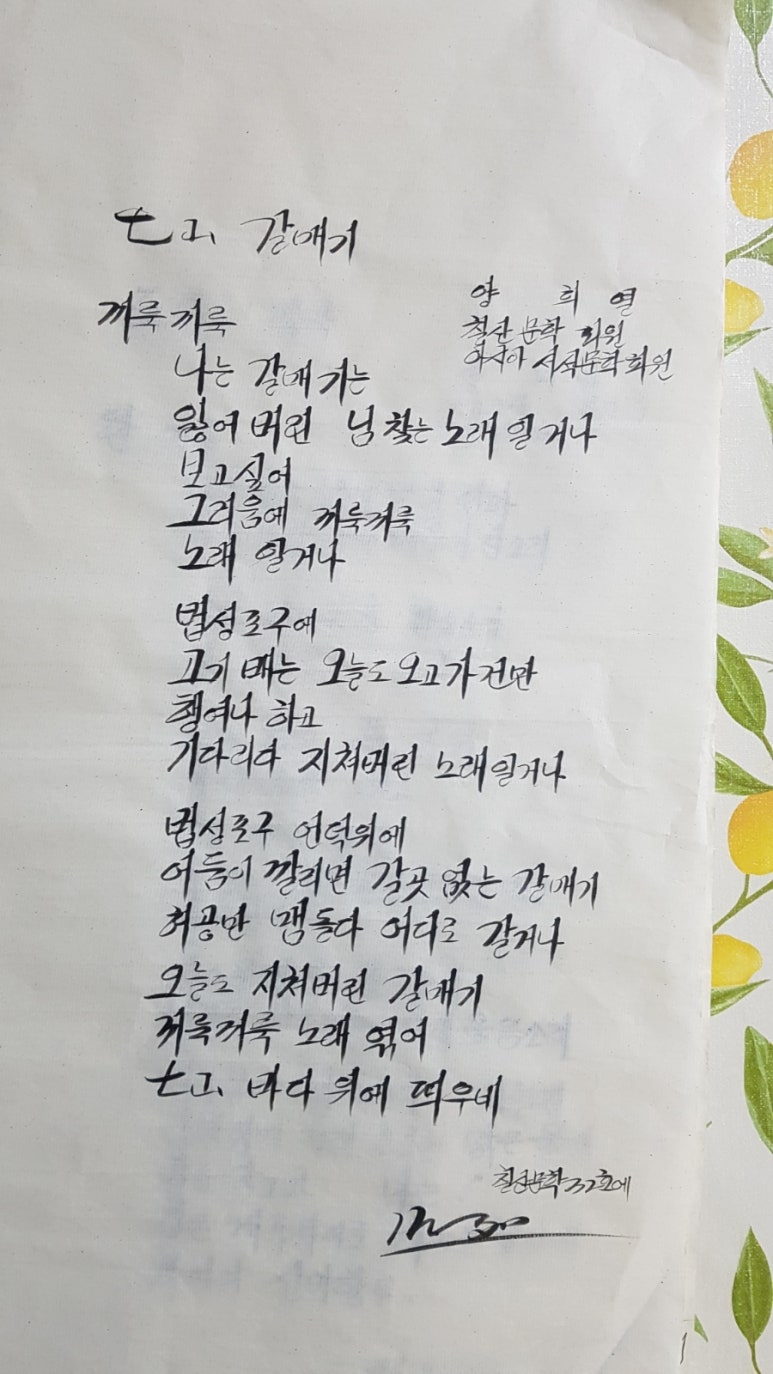 七山 갈매기
양 희 열
칠산 문학 회원
아시아 서석문학 회원
끼룩 끼룩
나는 갈매기는
잃어 버린 님 찾는 노래 일거나
보고싶어
그리움에 끼룩끼룩
노래 일거나
법성포구에
고기 배는 오늘도 오고가건만
행여나 하고
기다리다 지쳐버린 노래일거나
법성포구 언덕위에
어둠이 깔리면 갈곳 없는 갈매기
허공만 맴돌다 어디로 갈거나
오늘도 지쳐버린 갈매기
끼룩끼룩 노래 엮어
七山 바다 위에 띄우네
칠산문학32호에